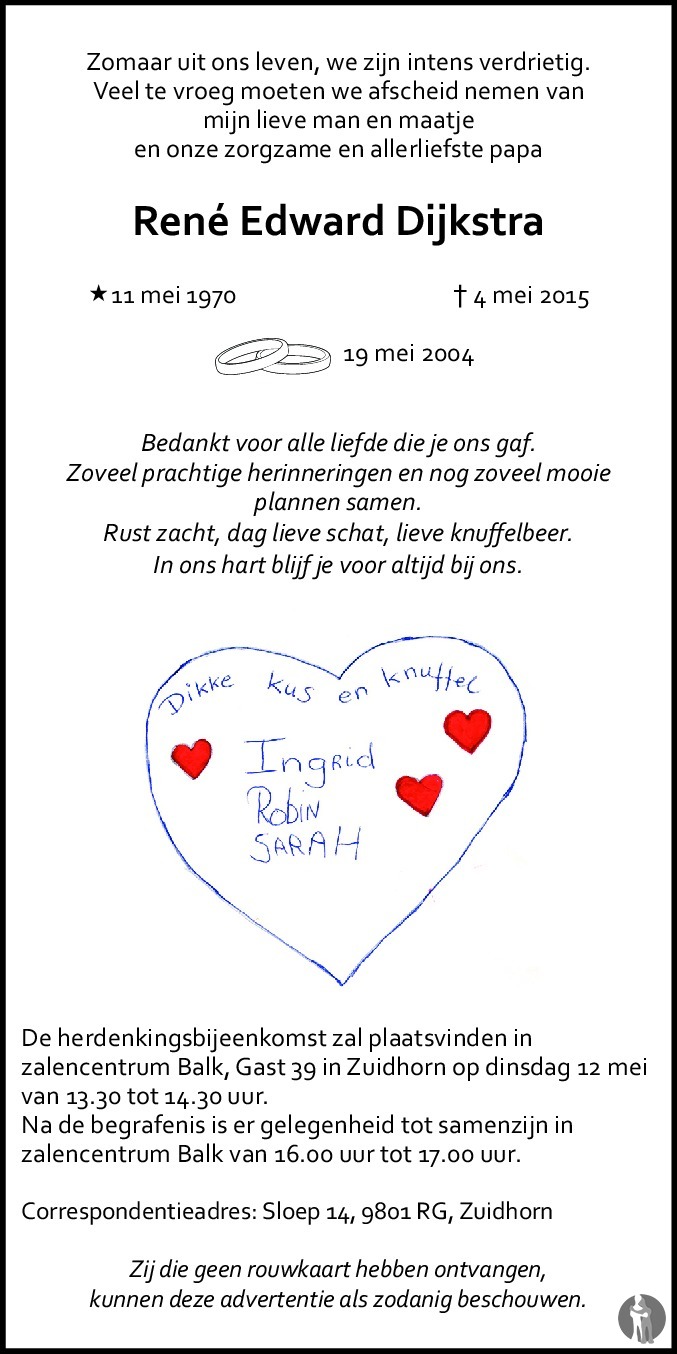 Zomaar uit ons leven, we zijn intens verdrietig.
Veel te vroeg moeten we afscheid nemen van
mijn lieve man en maatje
en onze zorgzame en allerliefste papa
René Edward Dijkstra
★ 11 mei 1970 † 4 mei 2015
19 mei 2004
Bedankt voor alle liefde die je ons gaf.
Zoveel prachtige herinneringen en nog zoveel mooie
plannen samen.
Rust zacht, dag lieve schat, lieve knuffelbeer.
In ons hart blijf je voor altijd bij ons.
Dikke kus en knuffel
Ingrid
Robin
SARAH
De herdenkingsbijeenkomst zal plaatsvinden in
zalencentrum Balk, Gast 39 in Zuidhorn op dinsdag 12 mei
van 13.30 tot 14.30 uur.
Na de begrafenis is er gelegenheid tot samenzijn in
zalencentrum Balk van 16.00 uur tot 17.00 uur.
Correspondentieadres: Sloep 14, 9801 RG, Zuidhorn
Zij die geen rouwkaart hebben ontvangen,
kunnen deze advertentie als zodanig beschouwen.